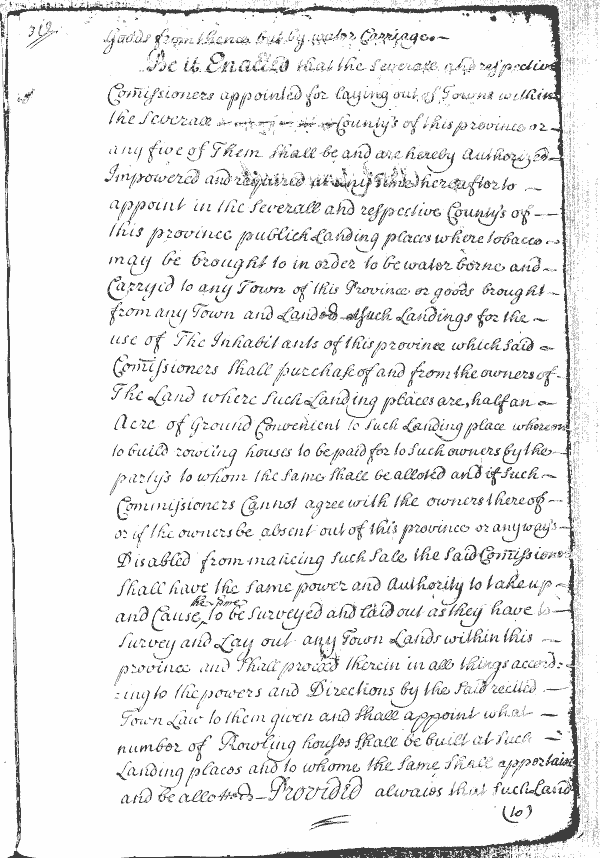 312.
Goods from thence but by water Carriage.
Be it Enacted that the Severall and respective
Comissioners appointed for laying out of Towns within
the Severall County's of this province or
any five of Them shall be and are hereby Authorized
Impowered and required at any time hereafter to
appoint in the Severall and respective County's of
this province publick Landing places where tobacco
may be brought to in order to be water borne and
Carryid to any Town of this Province or goods brought
from any Town and Landed at such Landings for the
use of The Inhabitants of this province which said
Comissioners shall purchase of and from the owners of
The Land where such Landing places are, half an
Acre of Ground Convenient to such Landing place whereon
to build rowling houses to be paid for to such owners by the
party's to whom the same shall be alloted and if such
Commissioners Cannot agree with the owners thereof
or if the owners be absent out of this province or any ways
Disabled from makeing such sale the said Comissioners
shall have the same power and Authority to take up
and Cause the same to be surveyed and laid out as they have to
survey and Lay out any Town Lands within this
province and shall proceed therein in all things accord:
:ing to the powers and Directions by the said recited
Town Law to them given and shall appoint what
number of Rowling houses shall be built at such
Landing places and to whome the same shall appertaine
and be allotted Provided alwaies that such Land
(10)